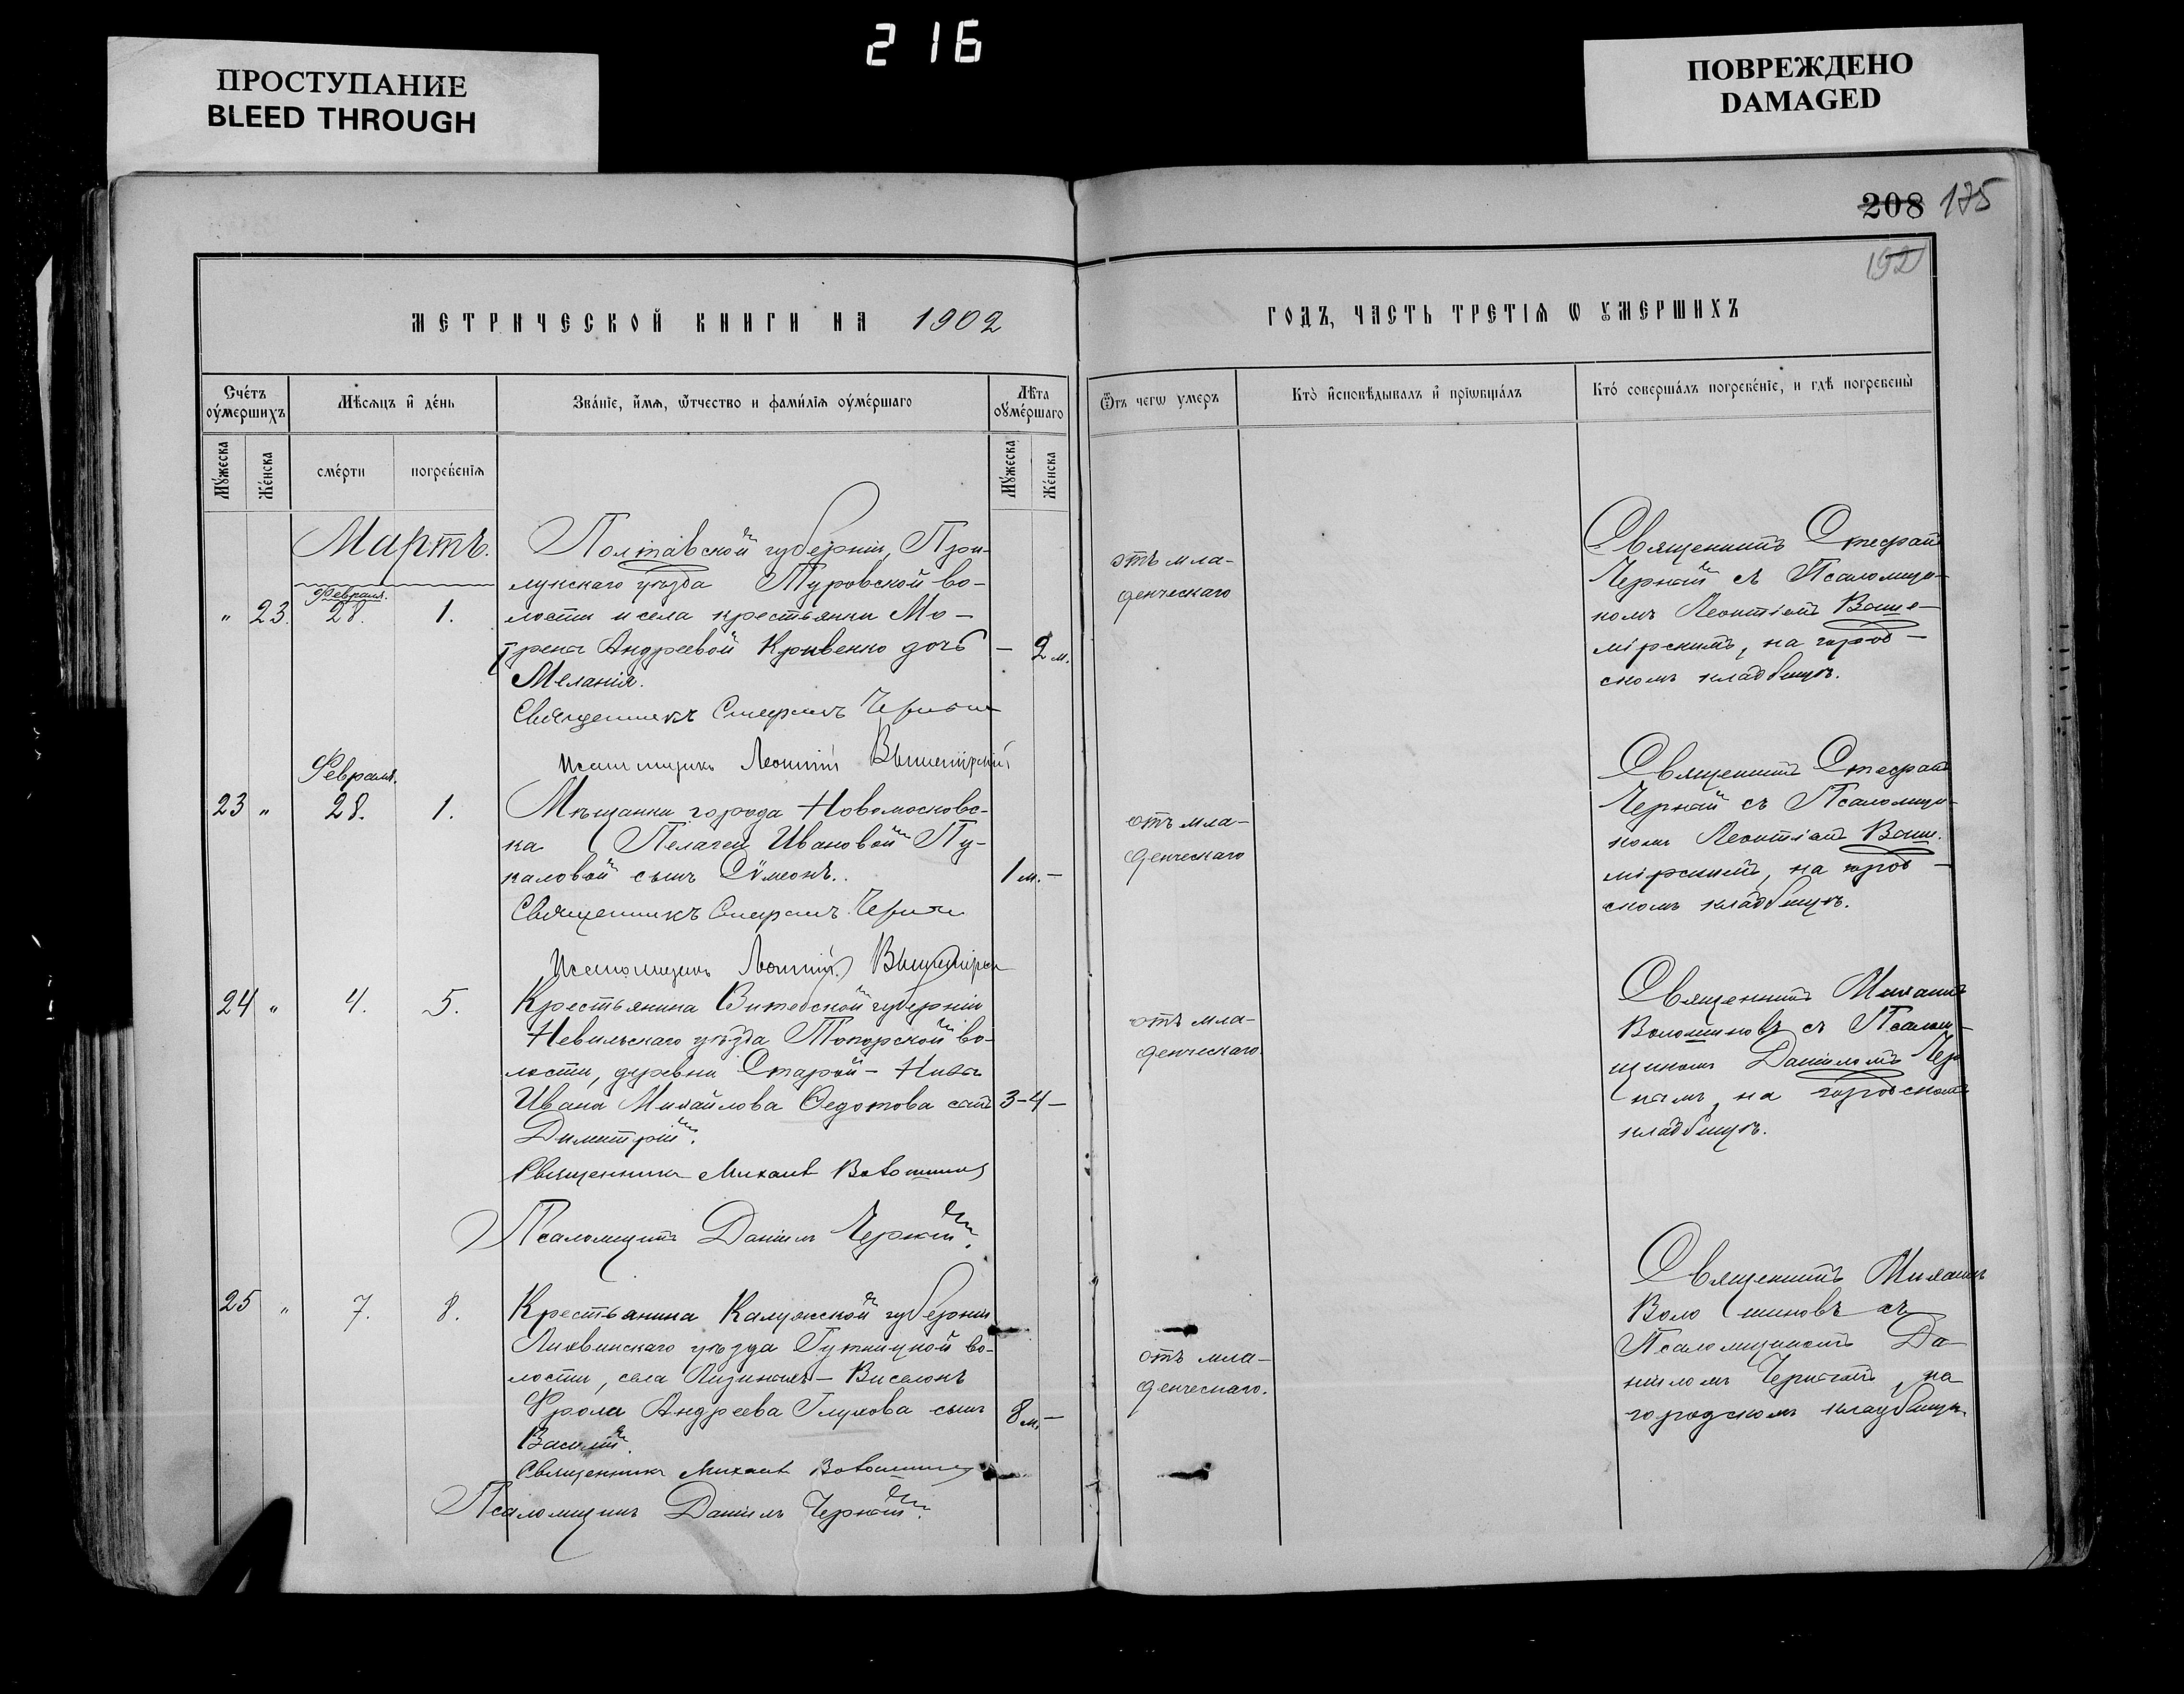 216
ПРОСТУПАНИЕ
BLEED THROUGH
ПОВРЕЖДЕНО
DAMAGED
208 175
192
МЕТРИЧЕСКОЙ КНИГИ НА 1902
ГОДЪ, ЧАСТЬ ТРЕТІѦ Ѡ ᲂУМЕРШИХЪ
Счéтъ ᲂу҆мéршихъ
Мѣсѧцъ и҆ дéнь
Звáніе, и҆́мѧ, ѻ҆́тчество и фами́лїѧ ᲂу҆мéршагѡ
Лѣта ᲂу҆мéршаго
Ѿ чегѡ умеръ
Ктò и҆сповѣ́дывалъ и҆ прїѡбщáлъ
Ктó совершáлъ погребéнїе, и гдѣ̀ погребены̀
Мꙋ́жеска
Жéнска
смéрти
погребéнїѧ
Мꙋ́жеска
Жéнска
Мартъ.
" 23.
Февраля.
28.
1.
Полтавской губерніи, При-
лукскаго уѣзда Туровской во-
лости и села крестьянки Мо-
трены Андреевой Кривенко дочь
Меланія.
— 2 м.
Священникъ Стефанъ Черный
Псаломщикъ Леонтій Вышемірскій
отъ мла-
денческаго
Священникъ Стефанъ
Черный съ Псаломщи-
комъ Леонтіемъ Выше-
мірскимъ, на город-
скомъ кладбищѣ.
23 "
Февраля.
28.
1.
Мѣщанки города Новомосковс-
ка Пелагеи Ивановой Пу-
каловой сынъ Сѵмеонъ.
1 м. —
Священникъ Стефанъ Черный
Псаломщикъ Леонтій Вышемірск
отъ мла-
денческаго
Священникъ Стефанъ
Черный съ Псаломщи-
комъ Леонтіемъ Выше-
мірскимъ, на город-
скомъ кладбищѣ.
24 "
4.
5.
Крестьянина Витебской губерніи
Невельскаго уѣзда Топорской во-
лости, деревни Старой-Нивы
Ивана Михайлова Ѳедотова сынъ
Димитрій.
3-4 —
Священникъ Михаилъ Волошиновъ
Псаломщикъ Даніилъ Черный.
отъ мла-
денческаго.
Священникъ Михаилъ
Волошиновъ съ Псалом-
щикомъ Даніиломъ Чер
нымъ, на городскомъ
кладбищѣ.
25 "
7.
8.
Крестьянина Калужской губерніи
Лихвинскаго уѣзда во-
лости, села
Фрола Андреева Глухова сынъ
Василій.
8 м. —
Священникъ Михаилъ Волошиновъ
Псаломщикъ Даніилъ Черный.
отъ мла-
денческаго.
Священникъ Михаилъ
Воло шиновъ съ
Псаломщикомъ Да-
ніиломъ Чернымъ, на
городскомъ кладбищѣ.